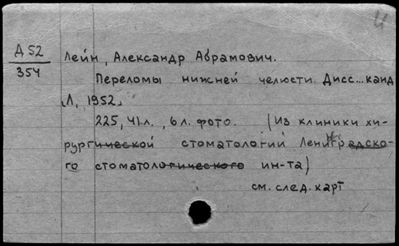 Ц
Д 52
354
Лейн, Александр Абрамович.
Переломы нижней челюсти. Дисс... канд
Л, 1952.
225, 41 л., 6 л. фото. (Из клиники хи-
рургической стоматологии Ленингрэдско-
го стоматологического ин-та)
см. след. карт